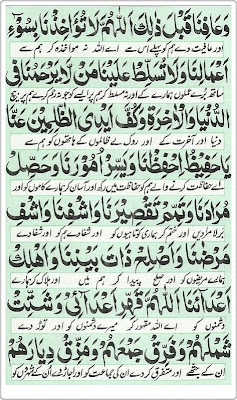 وَعَافِنَا قَبْلَ ذٰلِكَ اَللّٰهُمَّ لَا تُؤَاخِذْنَا بِسُوْٓءِ
اور عافیت دے ہم کو پہلے اس سے اے اللہ نہ مواخذہ کر ہم سے
اَعْمَالِنَا وَلَا تُسَلِّطْ عَلَيْنَا مَنْ لَّا يَرْحَمُنَا فِى
ساتھ برے عملوں ہمارے کے اور نہ مسلط کر ہم پر ایسے کو جو نہ رحم کرے ہم پر بیچ
الدُّنْيَا وَالْاٰخِرَةِ وَكُفَّ اَيْدِى الظّٰلِمِيْنَ عَنَّا
دنیا اور آخرت کے اور روک لے ظالموں کے ہاتھوں کو ہم سے
يَا حَفِيْظُ احْفَظْنَا وَيَسِّرْ اُمُوْرَنَا وَحَصِّلْ
اے حفاظت کرنے والے حفاظت میں رکھ ہم کو اور آسان کر ہمارے کاموں کو اور
مُرَادَنَا وَتَمِّمْ تَقْصِيْرَنَا وَاشْفِنَا وَاشْفِ
بر لا مرادیں اور ختم کر ہماری کوتاہیوں کو اور شفا دے ہم کو اور شفا دے
مَرْضَنَا وَاَصْلِحْ ذَاتَ بَيْنِنَا وَاَهْلِكْ
ہمارے مریضوں کو اور صلح پیدا کر ہم میں اور ہلاک کر ہمارے
اَعْدَآئَنَا اَللّٰهُمَّ اقْهَرْ اَعْدَآئِىْ وَشَتِّتْ
دشمنوں کو اے اللہ مقہور کر میرے دشمنوں کو اور توڑ دے
شَمْلَهُمْ وَفَرِّقْ جَمْعَهُمْ وَمَزِّقْ دِيَارَهُمْ
ان کے جتھے اور متفرق کر دے ان کی جماعت کو اور اجاڑ دے ان کے شہروں کو